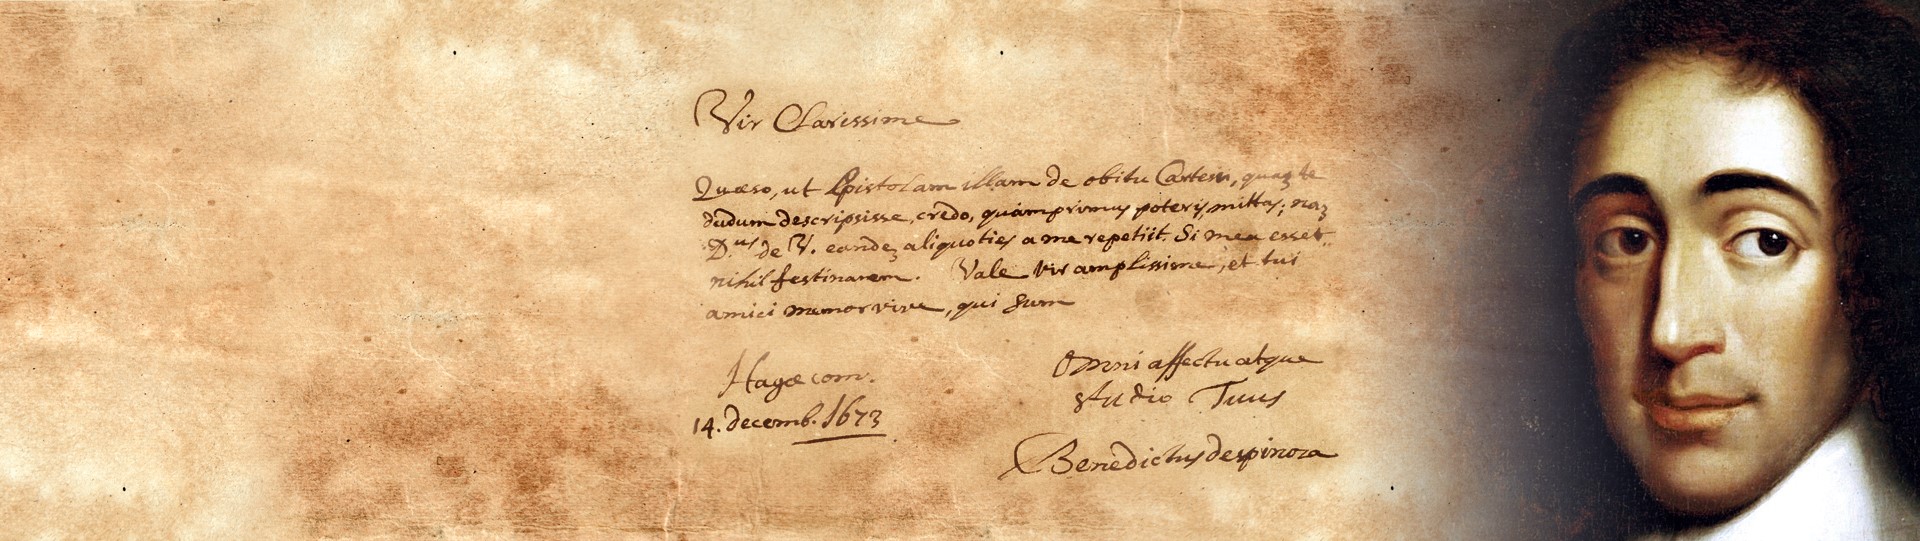 Vir Clarissime
Quæso, ut Epistolam illam de obitu Cartesii, quaꝫ te
dudum descripsisse, credo, quàm primum poteris, mittas; naꝫ
D.us de V. eandeꝫ aliquoties a me repetiit. Si mea esset..
nihil festinarem. Vale vir amplissime, et tui
amici memor vive, qui sum
Omni affectu atque
Hagæ com.
studio Tuus
14. decemb. 1673
Benedictus despinoza